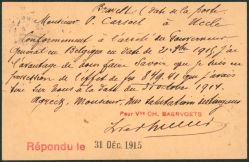 Bruxelles (date de la poste)
Monsieur P. Carsoel à Uccle
Conformément à l'arrêté du Gouverneur
Général en Belgique en date de 21 1915 j'ai
l'avantage de vous faire savoir que je suis en
possession de l'effet de fr 849.41 que j'avais
tiré sur vous à la date du 31 octobre 1914.
Agréez, Monsieur, mes salutations distinguées
Pour Vve CH. BAERVOETS
Répondu le 31 DÉC. 1915